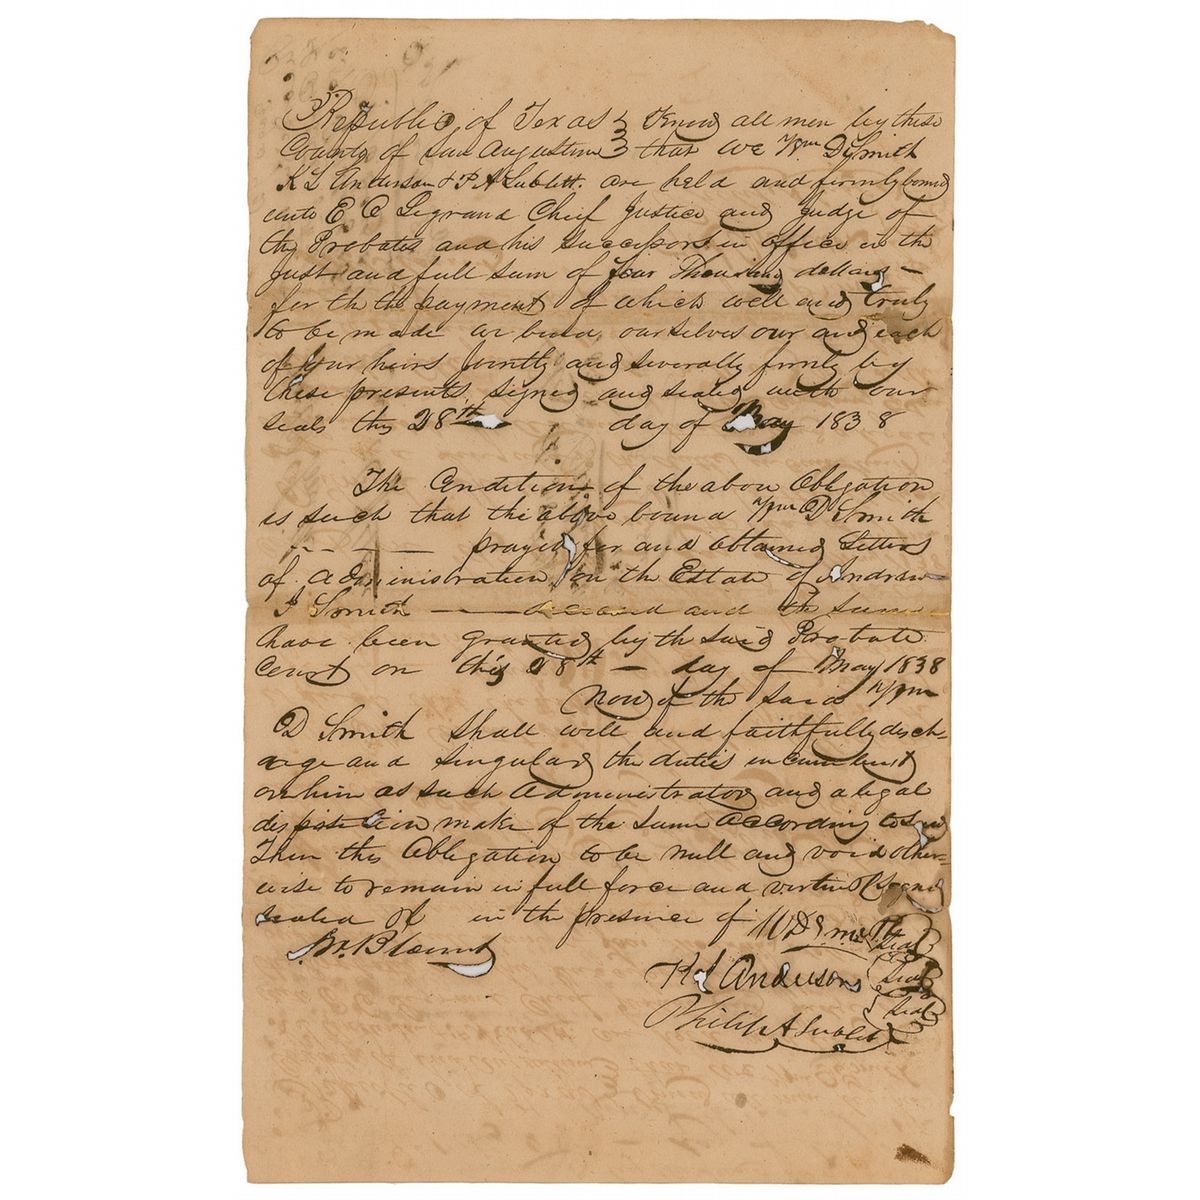 Republic of Texas } Know all men by these
County of San Augustine } that we Wm D Smith
K L Anderson & P A Sublett. are held and firmly bound
unto E O Legrand Chief Justice and Judge of
the Probates and his successors in office in the
just and full sum of four Thousand dollars —
for the the payment of which well and truly
to be made we bind ourselves our and each
of our heirs Jointly and severally firmly by
these presents, signed and sealed with our
seals this 28th day of May 1838
The Condition of the above Obligation
is such that the above bound Wm D Smith
prayed for and obtained Letters
of administration on the Estate of Andrew
J Smith — deceased and the same
have been granted by the said Probate
Court on this 28th — day of May 1838
Now if the said Wm
D Smith Shall well and faithfully disch-
arge and Singular the duties incumbent
on him as such Administrator and a legal
disposition make of the same according to
Then this Obligation to be null and void other-
wise to remain in full force and virtue Signed
sealed &c in the presence of WD Smith Seal
K L Anderson Seal
Philip A Sublett Seal